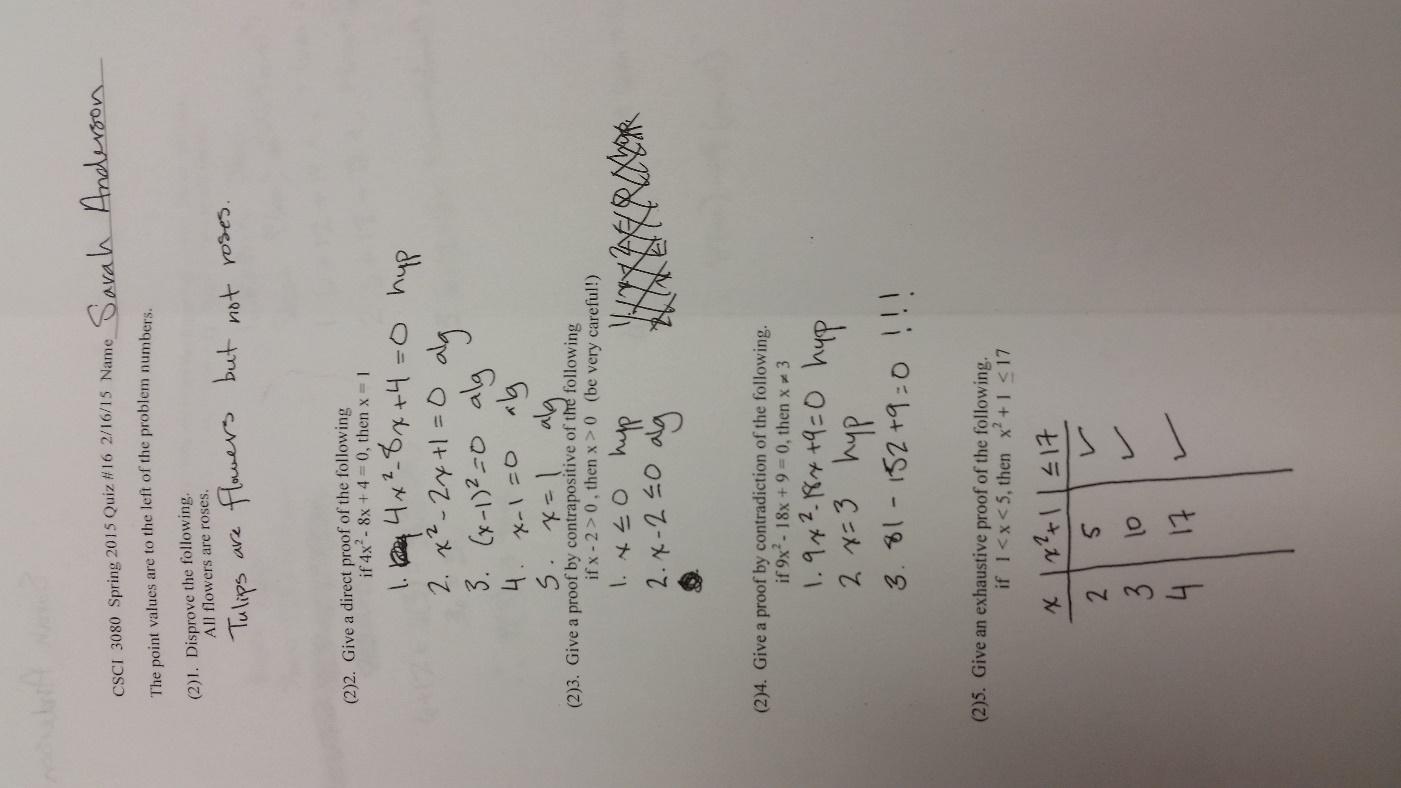 CSCI 3080 Spring 2015 Quiz #16 2/16/15 Name Sarah Anderson
The point values are to the left of the problem numbers.
(2)1. Disprove the following.
All flowers are roses.
Tulips are flowers but not roses.
(2)2. Give a direct proof of the following
if 4x² - 8x + 4 = 0, then x = 1
1. 4x² - 8x + 4 = 0 hyp
2. x² - 2x + 1 = 0 alg
3. (x-1)² = 0 alg
4. x-1 = 0 alg
5. x = 1 alg
(2)3. Give a proof by contrapositive of the following
if x - 2 > 0 , then x > 0 (be very careful!)
1. x ≤ 0 hyp
2. x - 2 ≤ 0 alg
(2)4. Give a proof by contradiction of the following.
if 9x² - 18x + 9 = 0, then x ≠ 3
1. 9x² - 18x + 9 = 0 hyp
2 x = 3 hyp
3. 81 - 152 + 9 = 0 !!!
(2)5. Give an exhaustive proof of the following.
if 1 < x < 5, then x² + 1 ≤ 17
x | x²+1 | ≤ 17
2 5 ✓
3 10 ✓
4 17 ✓